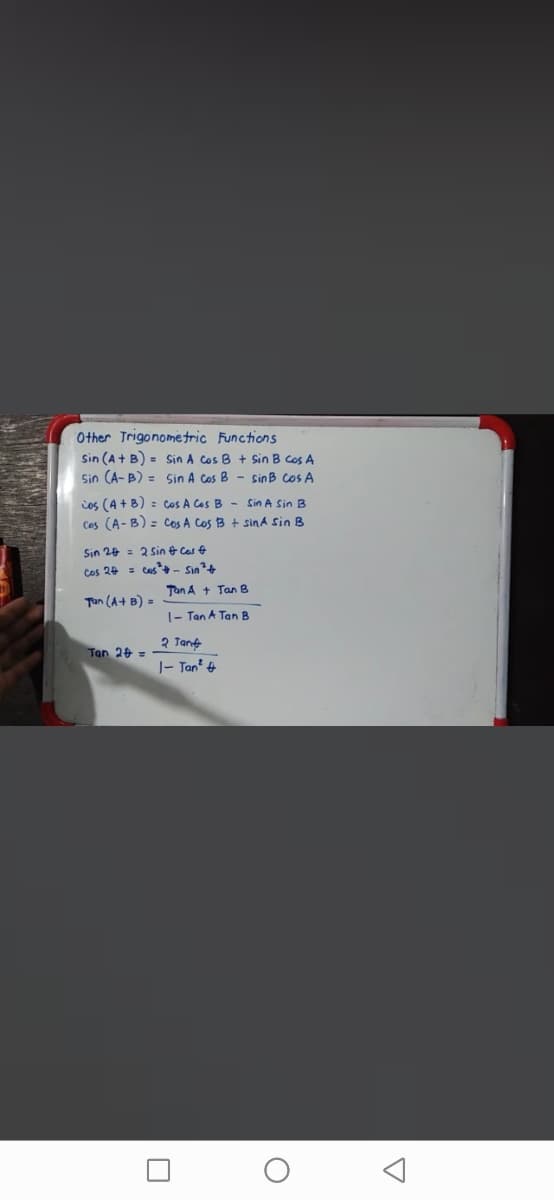 Other Trigonometric Functions
Sin (A + B) = Sin A Cos B + Sin B Cos A
Sin (A - B) = Sin A Cos B - sin B Cos A
Cos (A + B) = Cos A Cos B - Sin A Sin B
Cos (A - B) = Cos A Cos B + sin A Sin B
Sin 2θ = 2 Sin θ Cos θ
Cos 2θ = Cos²θ - Sin²θ
Tan (A + B) = Tan A + Tan B
1 - Tan A Tan B
Tan 2θ = 2 Tan θ
1 - Tan² θ